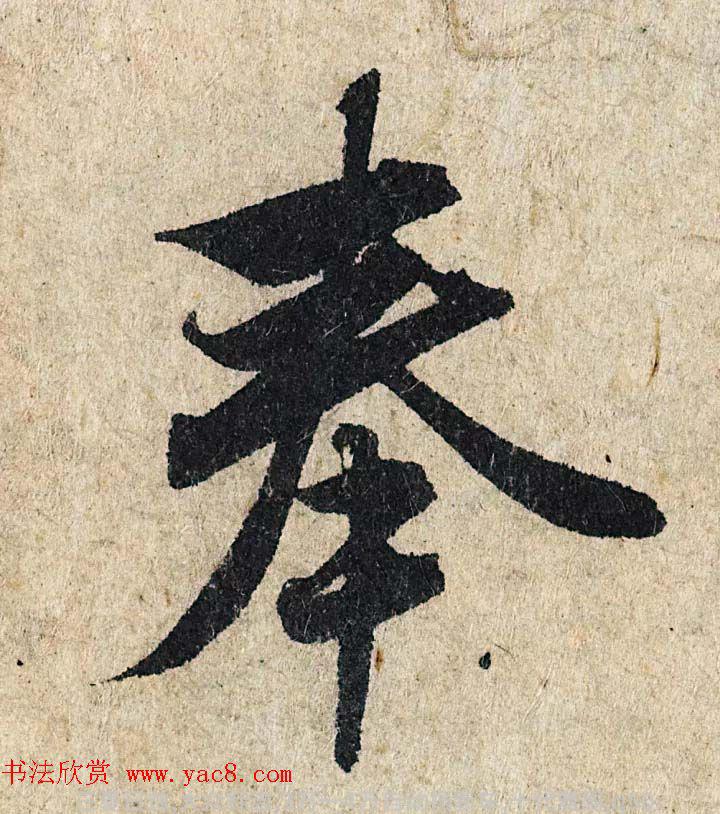 奉
书法欣赏 www.yac8.com